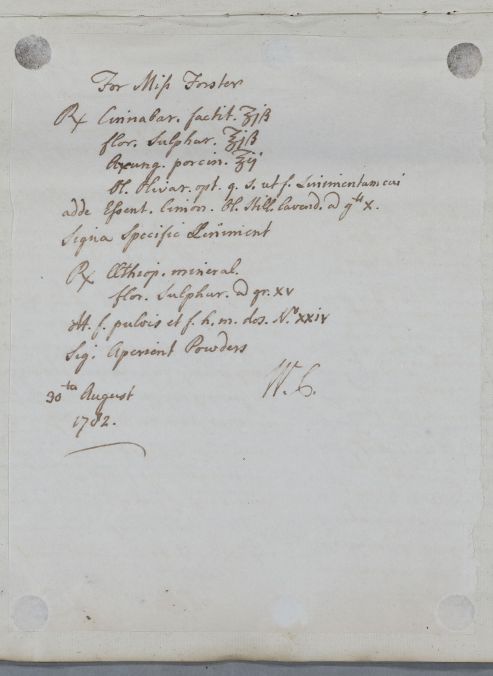 For Miſs Forster
℞ Cinnabar. factit. ℥jß
flor. Sulphur. ℥jß
Axung. porcin. ℥ij
Ol. Olivar. opt. q. s. ut f. Linimentum cui
adde Eſsent. Limon. Ol. Still. Lavend. a͠ gtts x.
Signa Specific Liniment
℞ Æthiop. mineral.
flor. Sulphur. a͠ gr. xv
M. f. pulvis et f. h. m. dos. No. xxiv
Sig. Aperient Powders
30th August W. C.
1782.